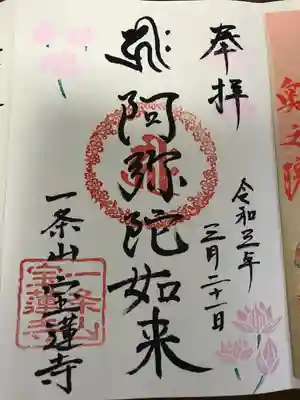 奉拝
令和五年
三月二十一日
阿弥陀如来
一条山
宝蓮寺
一条山
宝蓮寺